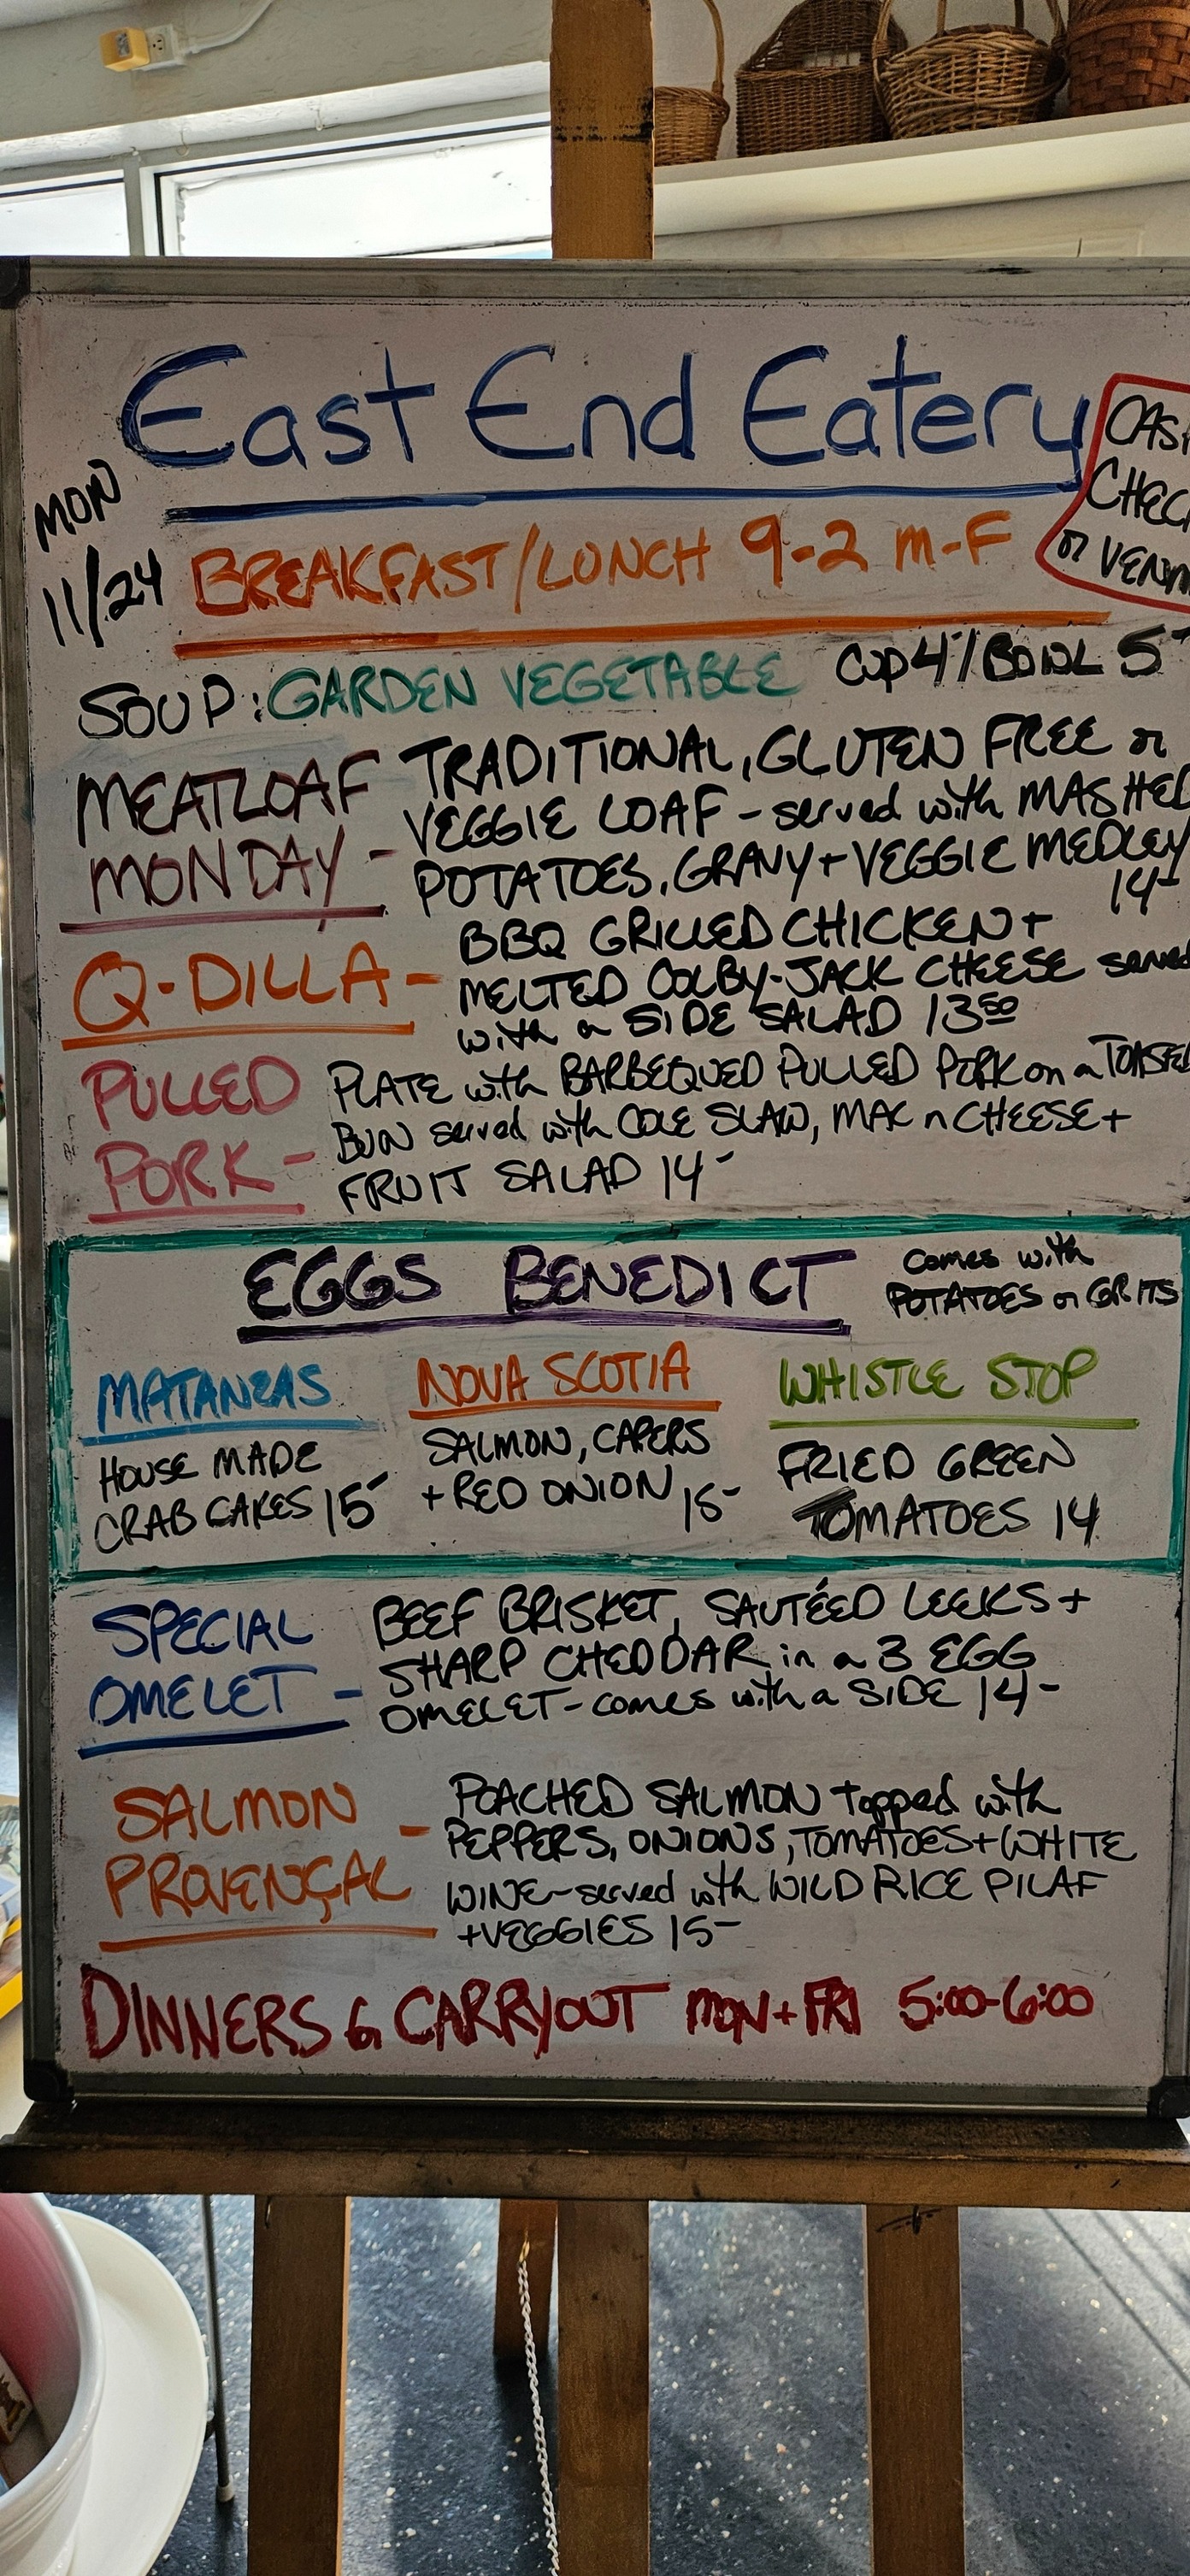 East End Eatery
MON
11/24
CASH
CHECK
or VENMO
BREAKFAST/LUNCH 9-2 M-F
SOUP: GARDEN VEGETABLE CUP 4-/BOWL 5-
MEATLOAF MONDAY - TRADITIONAL, GLUTEN FREE or
VEGGIE LOAF - served with MASHED
POTATOES, GRAVY + VEGGIE MEDLEY
14-
Q-DILLA - BBQ GRILLED CHICKEN +
MELTED COLBY-JACK CHEESE served
with a SIDE SALAD 13 50
PULLED PORK - PLATE with BARBEQUED PULLED PORK on a TOASTED
BUN served with COLE SLAW, MAC n CHEESE +
FRUIT SALAD 14-
EGGS BENEDICT
Comes with
POTATOES or GRITS
MATANZAS
HOUSE MADE
CRAB CAKES 15-
NOVA SCOTIA
SALMON, CAPERS
+ RED ONION 15-
WHISTLE STOP
FRIED GREEN
TOMATOES 14
SPECIAL OMELET - BEEF BRISKET, SAUTÉED LEEKS +
SHARP CHEDDAR in a 3 EGG
OMELET - comes with a SIDE 14-
SALMON PROVENÇAL - POACHED SALMON topped with
PEPPERS, ONIONS, TOMATOES + WHITE
WINE - served with WILD RICE PILAF
+ VEGGIES 15-
DINNERS & CARRYOUT MON + FRI 5:00-6:00